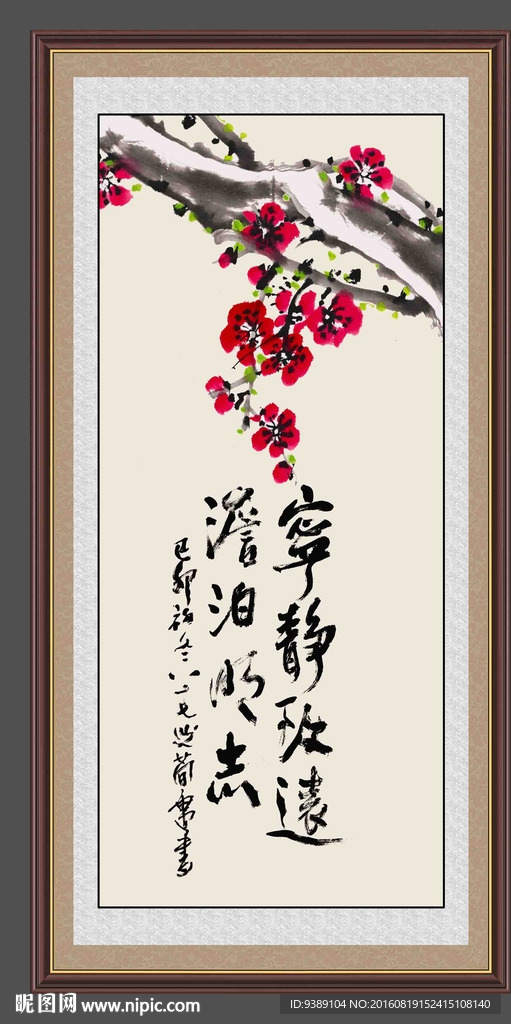 寧靜致遠
澹泊明志
己卯初冬八二老
昵图网 www.nipic.com
ID:9389104 NO:20160819152415108140